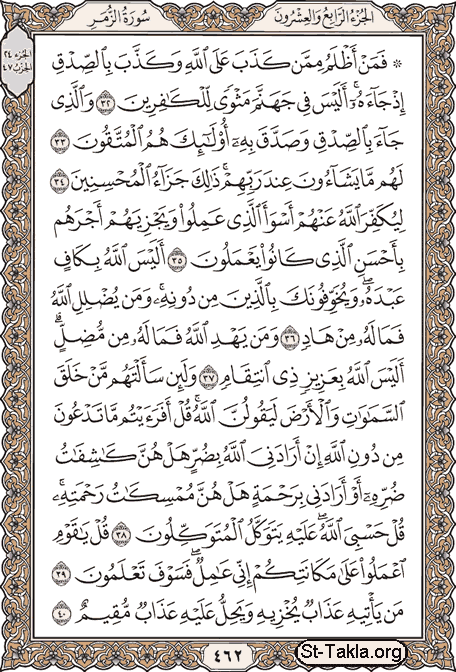 الجزء الرابع والعشرون
سورة الزمر
الجزء ٢٤
الحزب ٤٧
* فَمَنْ أَظْلَمُ مِمَّن كَذَبَ عَلَى ٱللَّهِ وَكَذَّبَ بِٱلصِّدْقِ
إِذْ جَآءَهُۥٓۚ أَلَيْسَ فِى جَهَنَّمَ مَثْوًى لِّلْكَٰفِرِينَ ٣٢ وَٱلَّذِى
جَآءَ بِٱلصِّدْقِ وَصَدَّقَ بِهِۦٓ أُوْلَٰٓئِكَ هُمُ ٱلْمُتَّقُونَ ٣٣
لَهُم مَّا يَشَآءُونَ عِندَ رَبِّهِمْۚ ذَٰلِكَ جَزَآءُ ٱلْمُحْسِنِينَ ٣٤
لِيُكَفِّرَ ٱللَّهُ عَنْهُمْ أَسْوَأَ ٱلَّذِى عَمِلُواْ وَيَجْزِيَهُمْ أَجْرَهُم
بِأَحْسَنِ ٱلَّذِى كَانُواْ يَعْمَلُونَ ٣٥ أَلَيْسَ ٱللَّهُ بِكَافٍ
عَبْدَهُۥۖ وَيُخَوِّفُونَكَ بِٱلَّذِينَ مِن دُونِهِۦۚ وَمَن يُضْلِلِ ٱللَّهُ
فَمَا لَهُۥ مِنْ هَادٍ ٣٦ وَمَن يَهْدِ ٱللَّهُ فَمَا لَهُۥ مِن مُّضِلٍّۗ
أَلَيْسَ ٱللَّهُ بِعَزِيزٍ ذِى ٱنتِقَامٍ ٣٧ وَلَئِن سَأَلْتَهُم مَّنْ خَلَقَ
ٱلسَّمَٰوَٰتِ وَٱلْأَرْضَ لَيَقُولُنَّ ٱللَّهُۚ قُلْ أَفَرَءَيْتُم مَّا تَدْعُونَ
مِن دُونِ ٱللَّهِ إِنْ أَرَادَنِىَ ٱللَّهُ بِضُرٍّ هَلْ هُنَّ كَٰشِفَٰتُ
ضُرِّهِۦٓ أَوْ أَرَادَنِى بِرَحْمَةٍ هَلْ هُنَّ مُمْسِكَٰتُ رَحْمَتِهِۦۚ
قُلْ حَسْبِىَ ٱللَّهُۖ عَلَيْهِ يَتَوَكَّلُ ٱلْمُتَوَكِّلُونَ ٣٨ قُلْ يَٰقَوْمِ
ٱعْمَلُواْ عَلَىٰ مَكَانَتِكُمْ إِنِّى عَٰمِلٌۖ فَسَوْفَ تَعْلَمُونَ ٣٩
مَن يَأْتِيهِ عَذَابٌ يُخْزِيهِ وَيَحِلُّ عَلَيْهِ عَذَابٌ مُّقِيمٌ ٤٠
٤٦٢
St-Takla.org